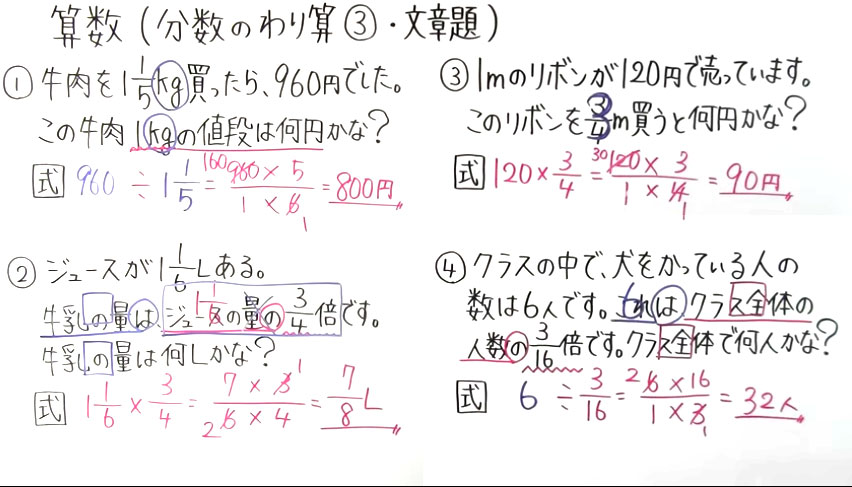 算数(分数のわり算③・文章題)
①牛肉を1 1/5kg買ったら、960円でした。
この牛肉1kgの値段は何円かな?
式 960 ÷ 1 1/5 = 160 960 × 5 / 1 × 6 1 = 800円
②ジュースが1 1/6Lある。
牛乳の量は、ジュースの量の3/4倍です。
牛乳の量は何Lかな?
式 1 1/6 × 3/4 = 7 × 3 1 / 2 6 × 4 = 7/8 L
③1mのリボンが120円で売っています。
このリボンを3/4m買うと何円かな?
式 120 × 3/4 = 30 120 × 3 / 1 × 4 1 = 90円
④クラスの中で、犬をかっている人の
数は6人です。これは、クラス全体の
人数の3/16倍です。クラス全体で何人かな?
式 6 ÷ 3/16 = 2 6 × 16 / 1 × 3 1 = 32人